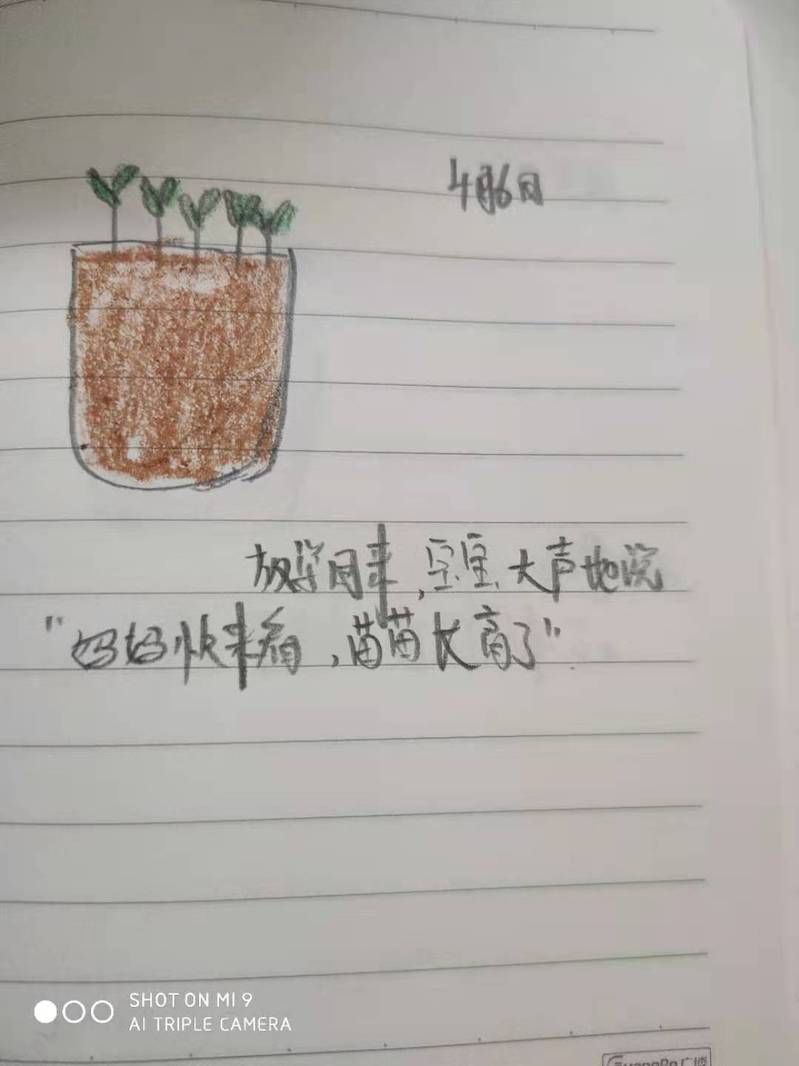 4月6日
放学回来,宝宝大声地说
"妈妈快来看,苗苗长高了"
SHOT ON MI 9
AI TRIPLE CAMERA
GuangBo广博